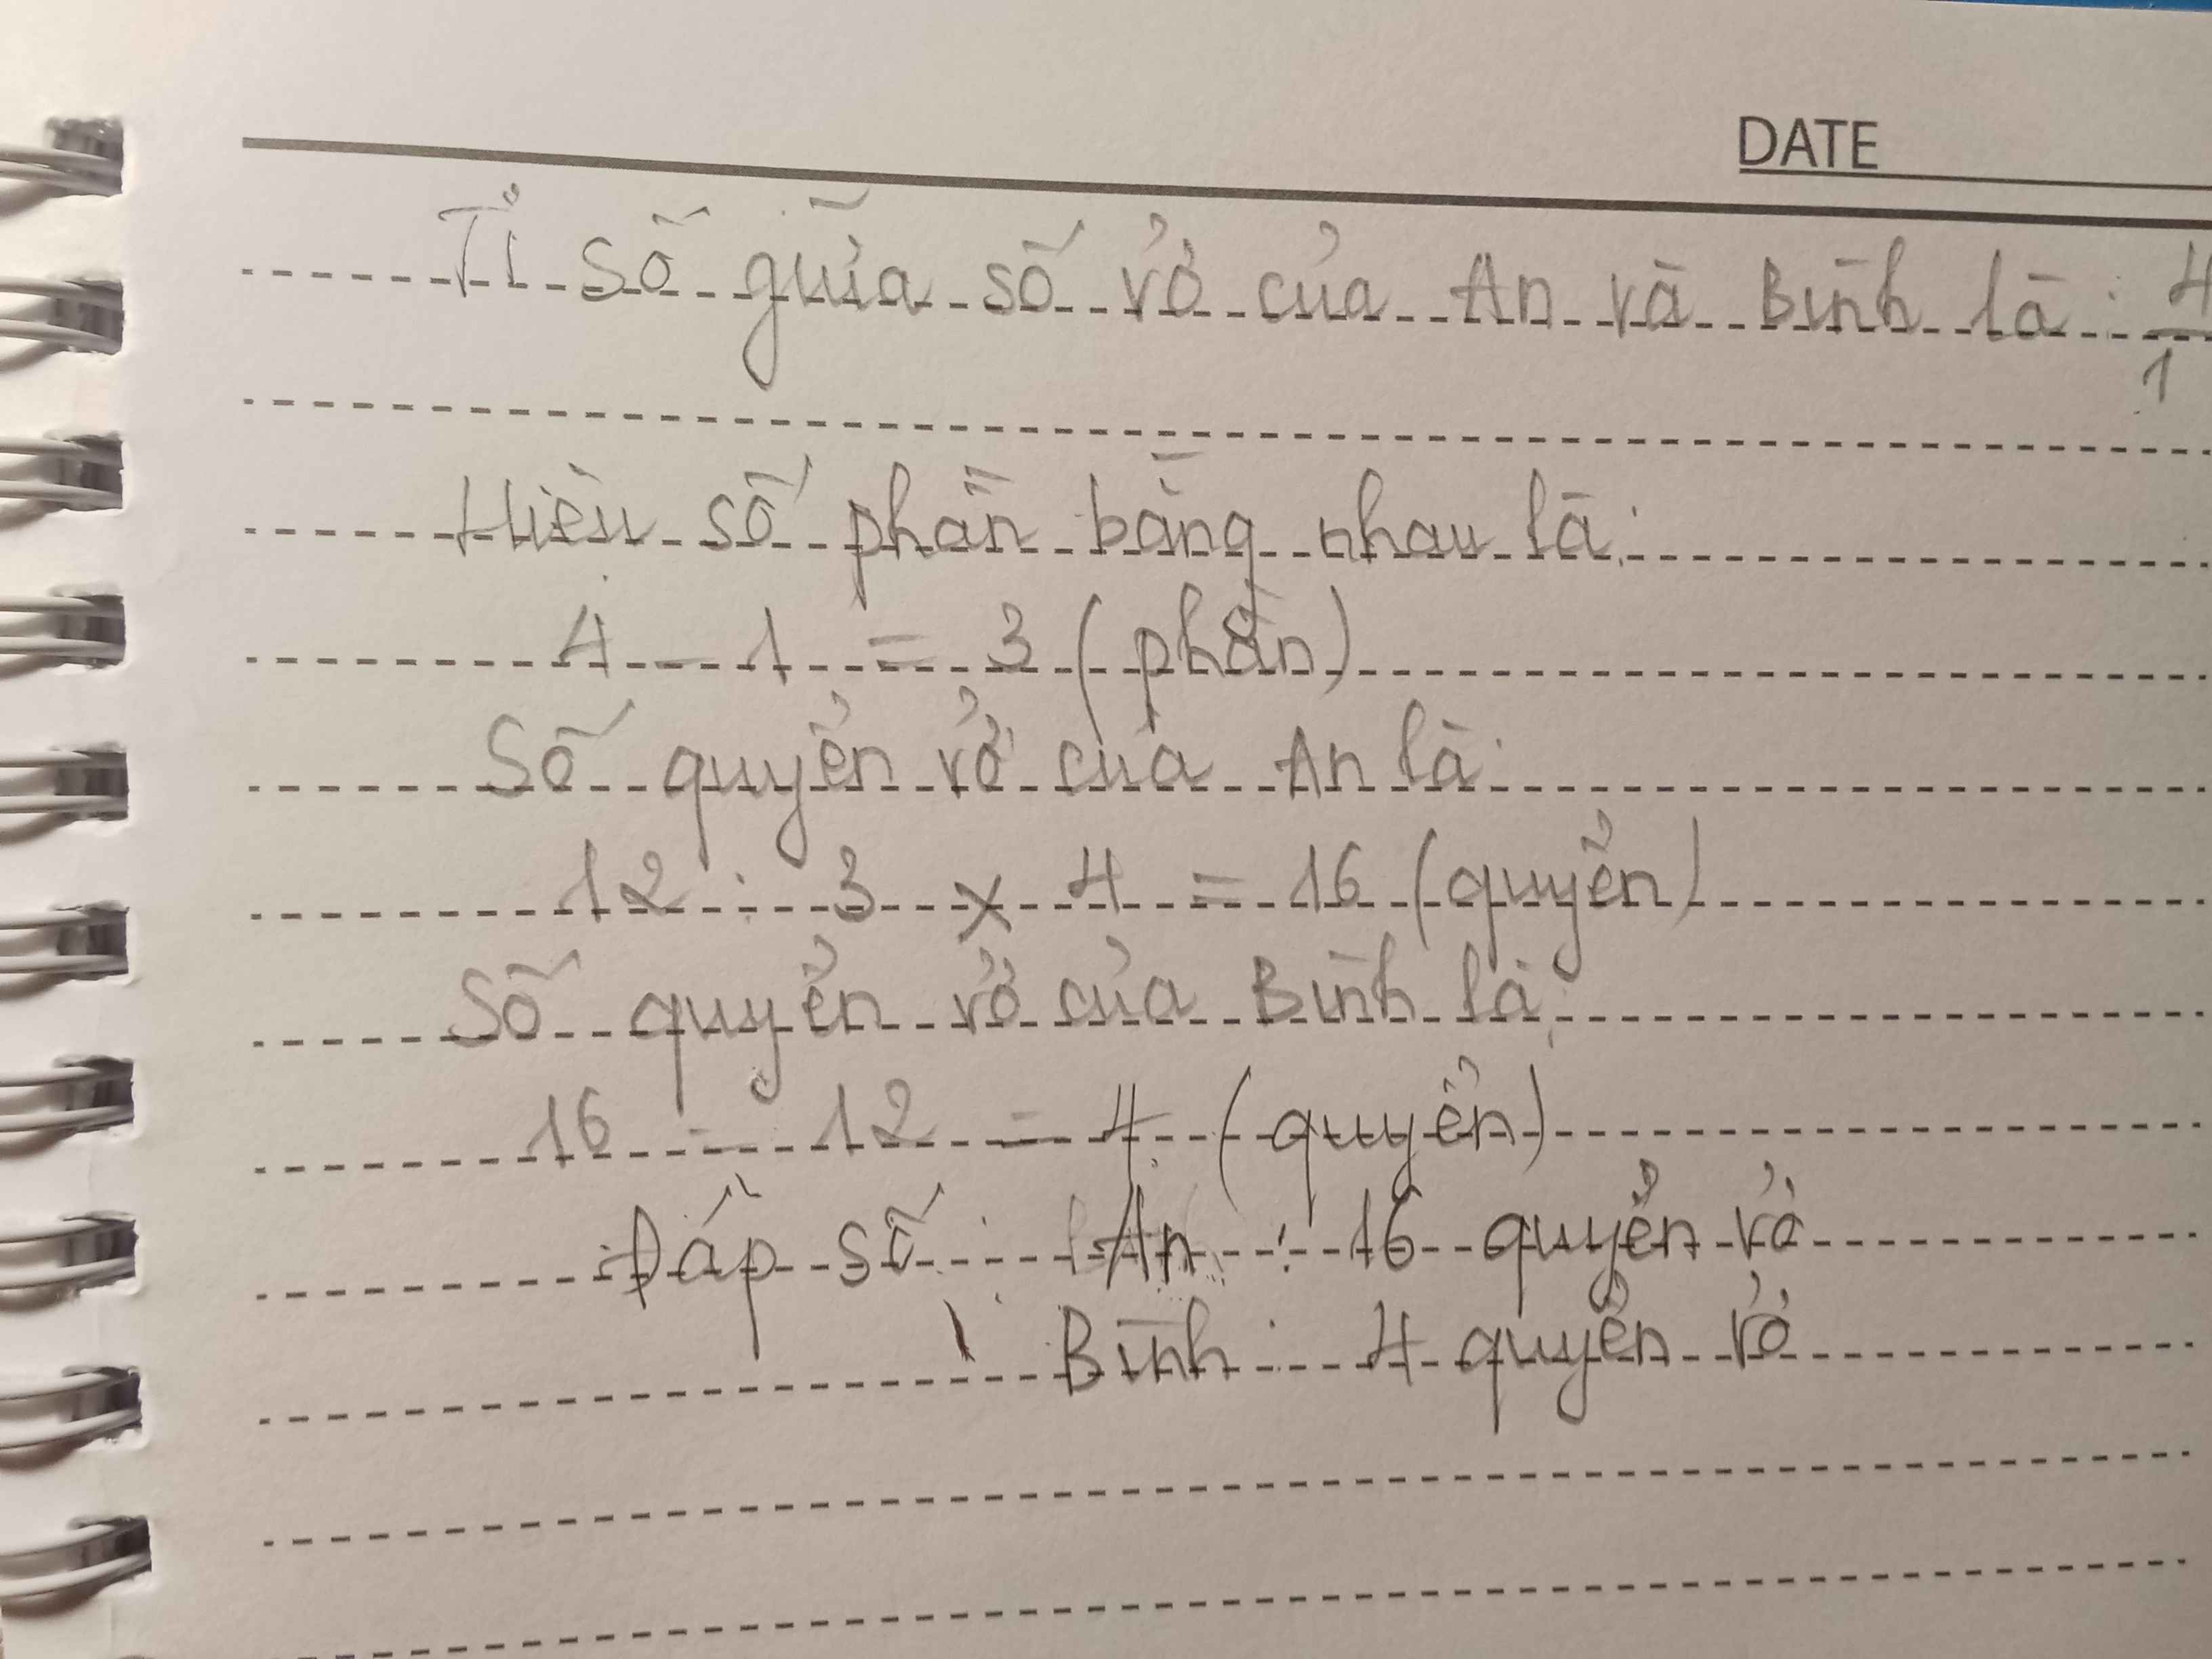 DATE
Tỉ số giữa số vở của An và Bình là : 4/1
Hiệu số phần bằng nhau là:
4 - 1 = 3 (phần)
Số quyển vở của An là:
12 : 3 x 4 = 16 (quyển)
Số quyển vở của Bình là:
16 - 12 = 4 (quyển)
Đáp số : An : 16 quyển vở
Bình : 4 quyển vở